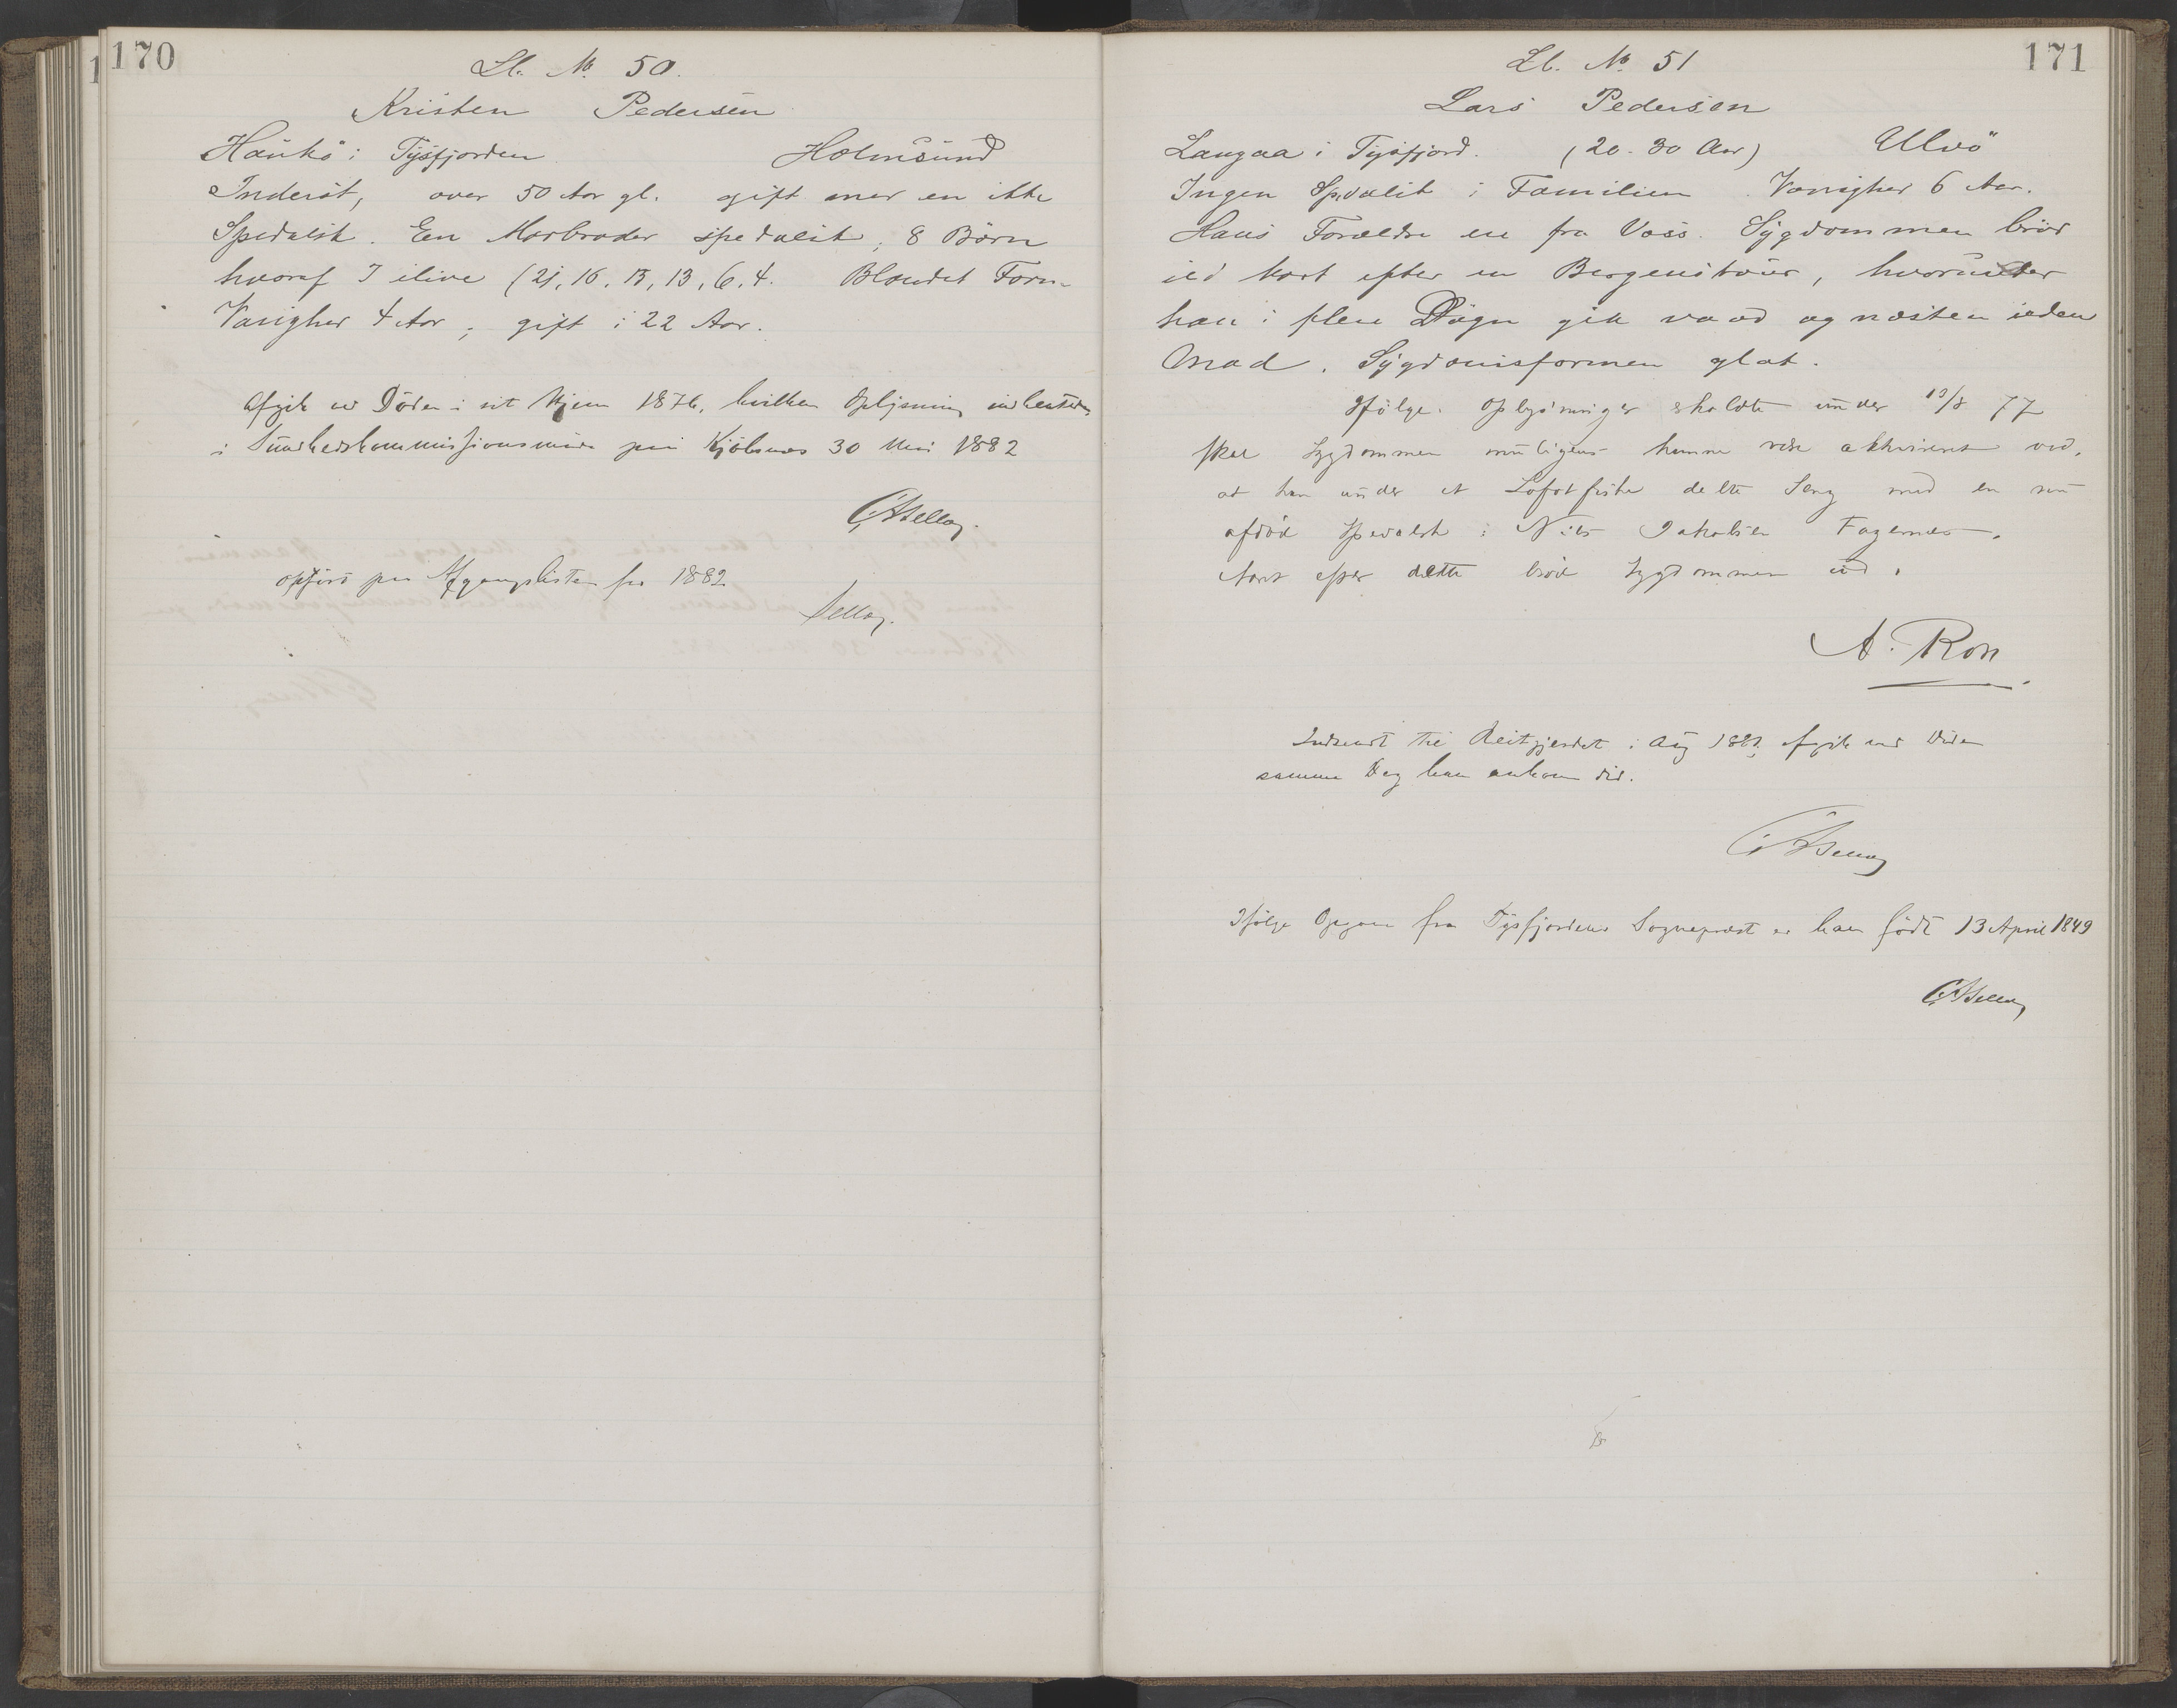 170
Lb. No. 50.
Kristen Pedersen
Haukö i Tysfjorden Holmsund
Inderst, over 50 Aar gl. gift mer en ikke
Spedalsk. En Morbroder spedalsk, 8 Börn
hvoraf 7 ilive (21, 16, 13, 6, 4. Blandet Form
Varighed 4 Aar, gift i 22 Aar.
Afgik ved Döden i sit Hjem 1876, hvilken Oplysning indhentedes
i Sundhedskommissionsmöde paa Kjöbsnes 30 Mai 1882
opfört paa Afgangslisten for 1882
171
Lb. No. 51
Lars Pedersen
Langaa i Tysfjord. (20-30 Aar) Ulvö
Ingen Spedalsk i Familien Varighed 6 Aar.
Hans Forældre ere fra Voss. Sygdommen bröd
ud kort efter en Bergenstour, hvorunder
han i flere Dögn gik vaad og næsten uden
Mad. Sygdomsformen glat.
Ifölge Oplysninger erholdte under 13/8 77
skal Sygdommen muligens kunne være akkvireret ved,
at han under et Lofotfiske delte Seng med en nu
afdöd Spedalsk: Nils Jakobsen Fagernes.
Kort efter dette bröd Sygdommen ud.
Indsendt til Reitgjerdet i Aug 1882, afgik ved Döden
samme Dag han ankom did.
Ifölge Opgave fra Tysfjordens Sognepræst er han födt 13 April 1849